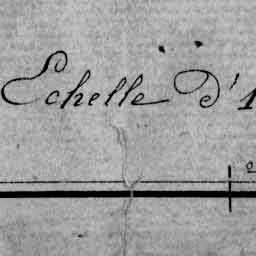 Echelle d'1
0